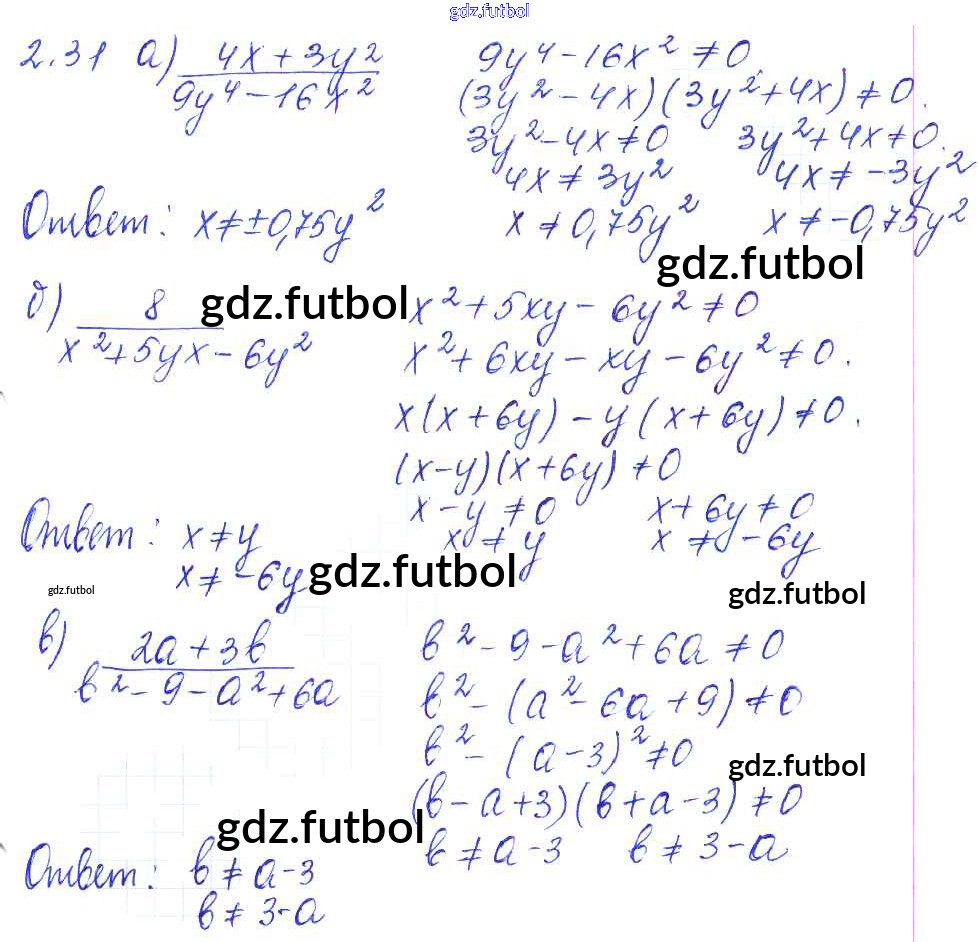 gdz.futbol
2.31 а) (4x + 3y²)/(9y⁴ - 16x²)   9y⁴ - 16x² ≠ 0
(3y² - 4x)(3y² + 4x) ≠ 0.
3y² - 4x ≠ 0   3y² + 4x ≠ 0.
4x ≠ 3y²   4x ≠ -3y²
Ответ: x ≠ ±0,75y²   x ≠ 0,75y²   x ≠ -0,75y²
gdz.futbol
б) 8/(x² + 5yx - 6y²)   gdz.futbol   x² + 5xy - 6y² ≠ 0
x² + 6xy - xy - 6y² ≠ 0.
x(x + 6y) - y(x + 6y) ≠ 0.
(x - y)(x + 6y) ≠ 0
x - y ≠ 0   x + 6y ≠ 0
Ответ: x ≠ y   x ≠ y   x ≠ -6y
x ≠ -6y   gdz.futbol
gdz.futbol   gdz.futbol
в) (2a + 3b)/(b² - 9 - a² + 6a)   b² - 9 - a² + 6a ≠ 0
b² - (a² - 6a + 9) ≠ 0
b² - (a - 3)² ≠ 0
gdz.futbol
(b - a + 3)(b + a - 3) ≠ 0
gdz.futbol
b ≠ a - 3   b ≠ 3 - a
Ответ: b ≠ a - 3
b ≠ 3 - a